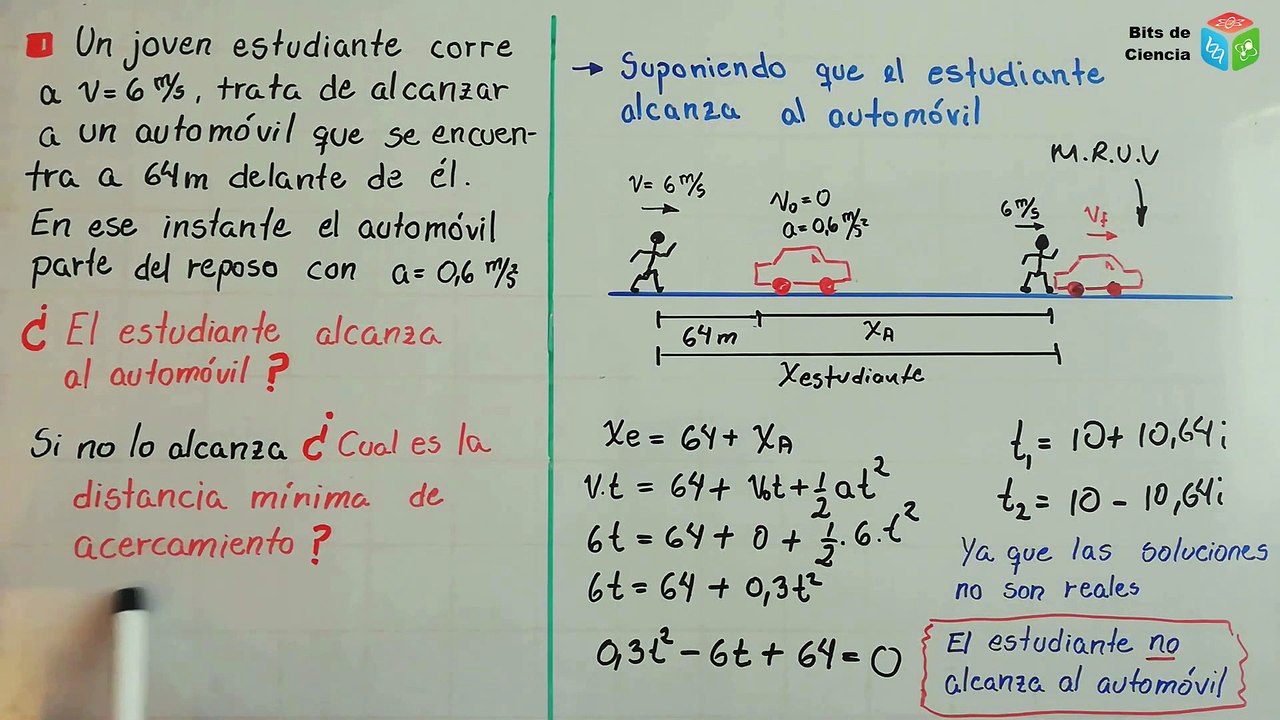 Un joven estudiante corre
a v=6 m/s, trata de alcanzar
a un automóvil que se encuen-
tra a 64m delante de él.
En ese instante el automóvil
parte del reposo con a= 0,6 m/s²
¿ El estudiante alcanza
al automóvil ?
Si no lo alcanza ¿ Cual es la
distancia mínima de
acercamiento ?
Bits de
Ciencia
→ Suponiendo que el estudiante
alcanza al automóvil
M.R.U.V
v= 6 m/s
V₀=0
a=0,6 m/s²
6 m/s
Vf
64m
XA
Xestudiante
Xe = 64+ XA
V.t = 64+ V₀t+½at²
6t = 64 + 0 + ½.6.t²
6t = 64 + 0,3t²
0,3t² - 6t + 64 = 0
t₁ = 10+ 10,64i
t₂ = 10 - 10,64i
Ya que las soluciones
no son reales
El estudiante no
alcanza al automóvil